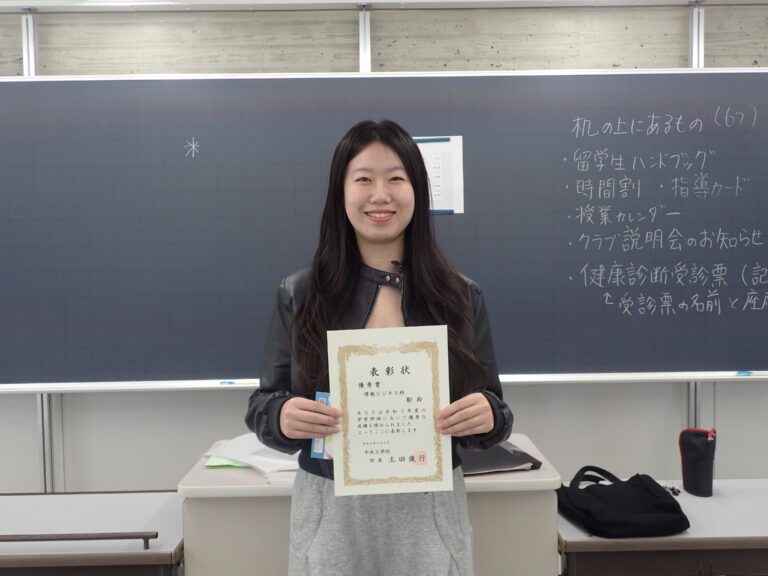 机の上にあるもの(6つ)
・留学生ハンドブッグ
・時間割 ・指導カード
・授業カレンダー
・クラブ説明会のお知らせ
・健康診断受診票(記
↑受診票の名前と座席
*
表彰状
優秀賞
情報ビジネス科
靳 玲
あなたは令和7年度の
学習評価において優秀な
成績を修められました
よってここに表彰します
中央工学校
校長 土田俊行